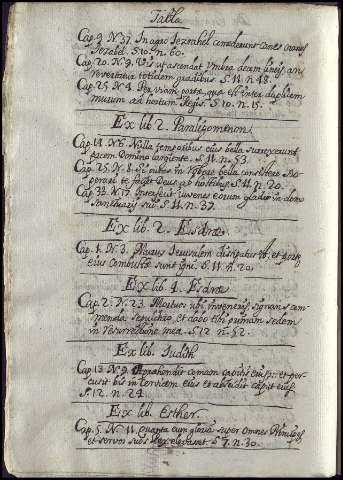 Tabla
Cap. 9. N. 37. In agro Jezrahel comederunt canes carnes
Jezabel. §. 10. n. 60.
Cap. 20. N. 9. Vis ut ascendat Umbra decem lineis, an
revertatur totidem gradibus. §. 11. n. 48.
Cap. 25. N. 4. Per viam portæ, quæ est inter duplicem
murum ad hortum Regis. §. 10. n. 15.
Ex lib. 2. Paralipomenon.
Cap. 14. N. 6. Nulla temporibus ejus bella surrexerunt
pacem Domino largiente. §. 11. n. 53.
Cap. 25. N. 8. in Robore bella consistere
te faciet Deus ab hostibus. §. 11. n. 20.
Cap. N. 17. Interfecit juvenes eorum gladio in domo
Sanctuarii sui. §. 11. n. 37.
Ex lib. 2. Esdræ
Cap. 1. N. 3. Murus Jerusalem dissipatus et portæ
ejus combustæ sunt igni. §. 11. n. 20.
Ex lib. 4. Esdræ
Cap. 2. N. 23. Mortuos ubi inveneris signans com-
menda sepulchro, et dabo tibi primam sedem
in resurrectione mea. §. 12. n. 52.
Ex lib. Judith
Cap. 13. N. 9. Apprehendit comam capitis ejus et per-
cussit bis in cervicem ejus et abscidit caput ejus.
§. 12. n. 24.
Ex lib. Esther.
Cap. 5. N. 11. quanta eum gloria super omnes Principes
et servos suos Rex elevasset. §. 7. n. 30.